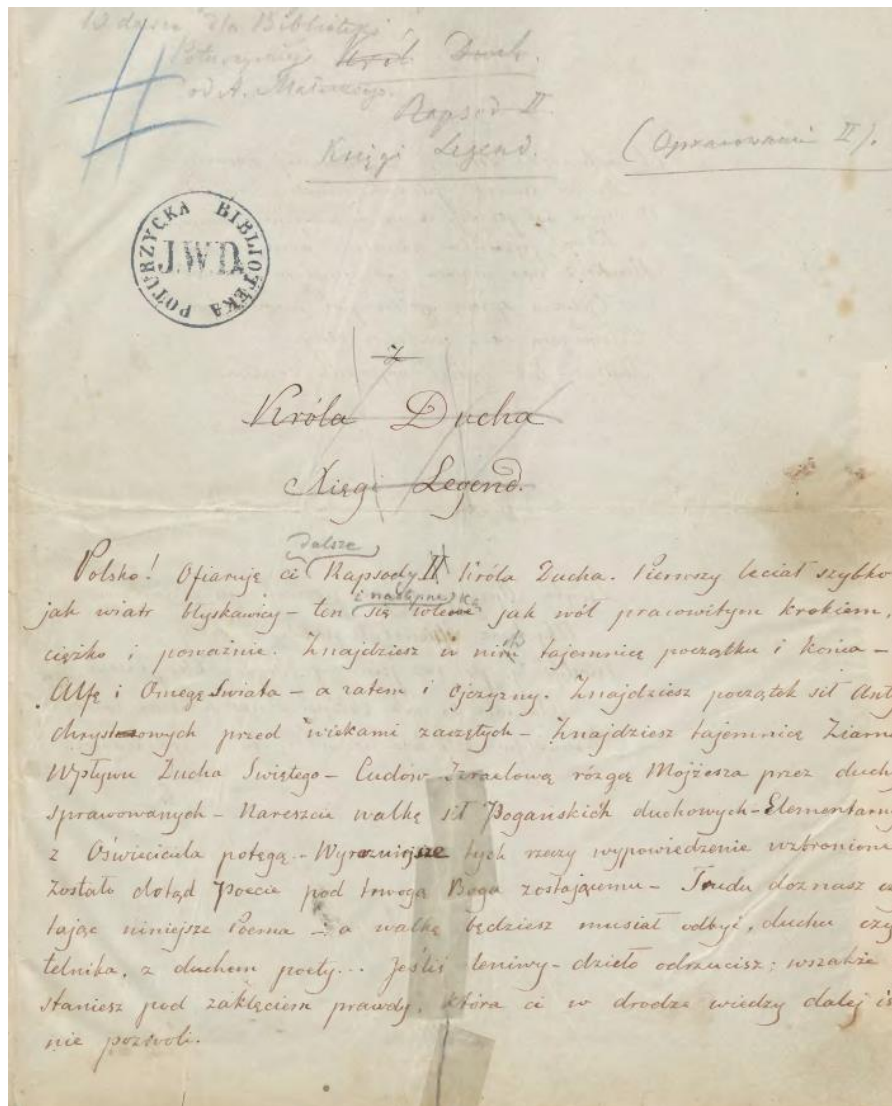 Wydane dla Biblioteki
Poturzyckiej Król Duch.
od A. Małeckiego.
Rapsod II.
Księgi Legend. (Opracowanie II).
POTURZYCKA BIBLIOTEKA
J.W.D.
z
Króla Ducha
Xięgi Legend.
dalsze
Polsko! Ofiaruję ci Rapsody II Króla Ducha. Pierwszy leciał szybko
i następne
jak wiatr błyskawicy – ten się wlecze jak wół pracowitym krokiem,
ciężko i poważnie. Znajdziesz w nim tajemnicę początku i końca –
Alfę i Omegę Świata – a zatem i ojczyzny. Znajdziesz początek sił Anty
chrystusowych przed wiekami zaczętych – Znajdziesz tajemnicę Ziarn
Wpływu Ducha Świętego – Cudów Izraelową rózgą Mojżesza przez duch
sprawowanych – Nareszcie walkę sił Pogańskich duchowych – Elementarn
z Oświeciciela potęgą. – Wyraźniejsze tych rzeczy wypowiedzenie wzbronione
zostało dotąd Poecie pod trwogą Boga zostającemu – Trudu doznasz cz
tając niniejsze Poema – a walkę będziesz musiał odbyć, duchu czy
telnika, z duchem poety... Jeśliś leniwy – dzieło odrzucisz; wszakże
staniesz pod zaklęciem prawdy, która ci w drodze wiedzy dalej iś
nie pozwoli.